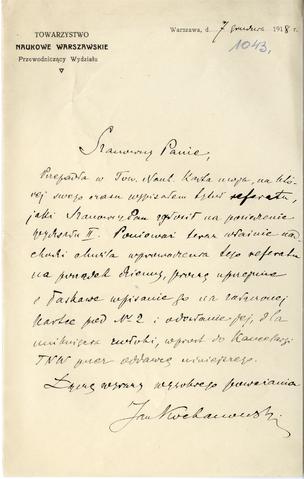 TOWARZYSTWO
NAUKOWE WARSZAWSKIE
Przewodniczący Wydziału
Warszawa, d. 7 grudnia 1918 r.
1043.
Szanowny Panie,
Przepadła w Tow. Nauk. Kartka moja, na któ-
rej swego czasu wypisałem tytuł referatu,
jaki Szanowny Pan zgłosił na posiedzenie
Wydziału II. Ponieważ teraz właśnie nad-
chodzi chwila wprowadzenia tego referatu
na porządek dzienny, proszę uprzejmie
o łaskawe wpisanie go na załączonej
kartce pod № 2 i odesłanie jej, dla
uniknięcia zwłoki, wprost do Kancelarji
TNW przez oddawcę niniejszego.
Łączę wyrazy wysokiego poważania
Jan Kochanowski